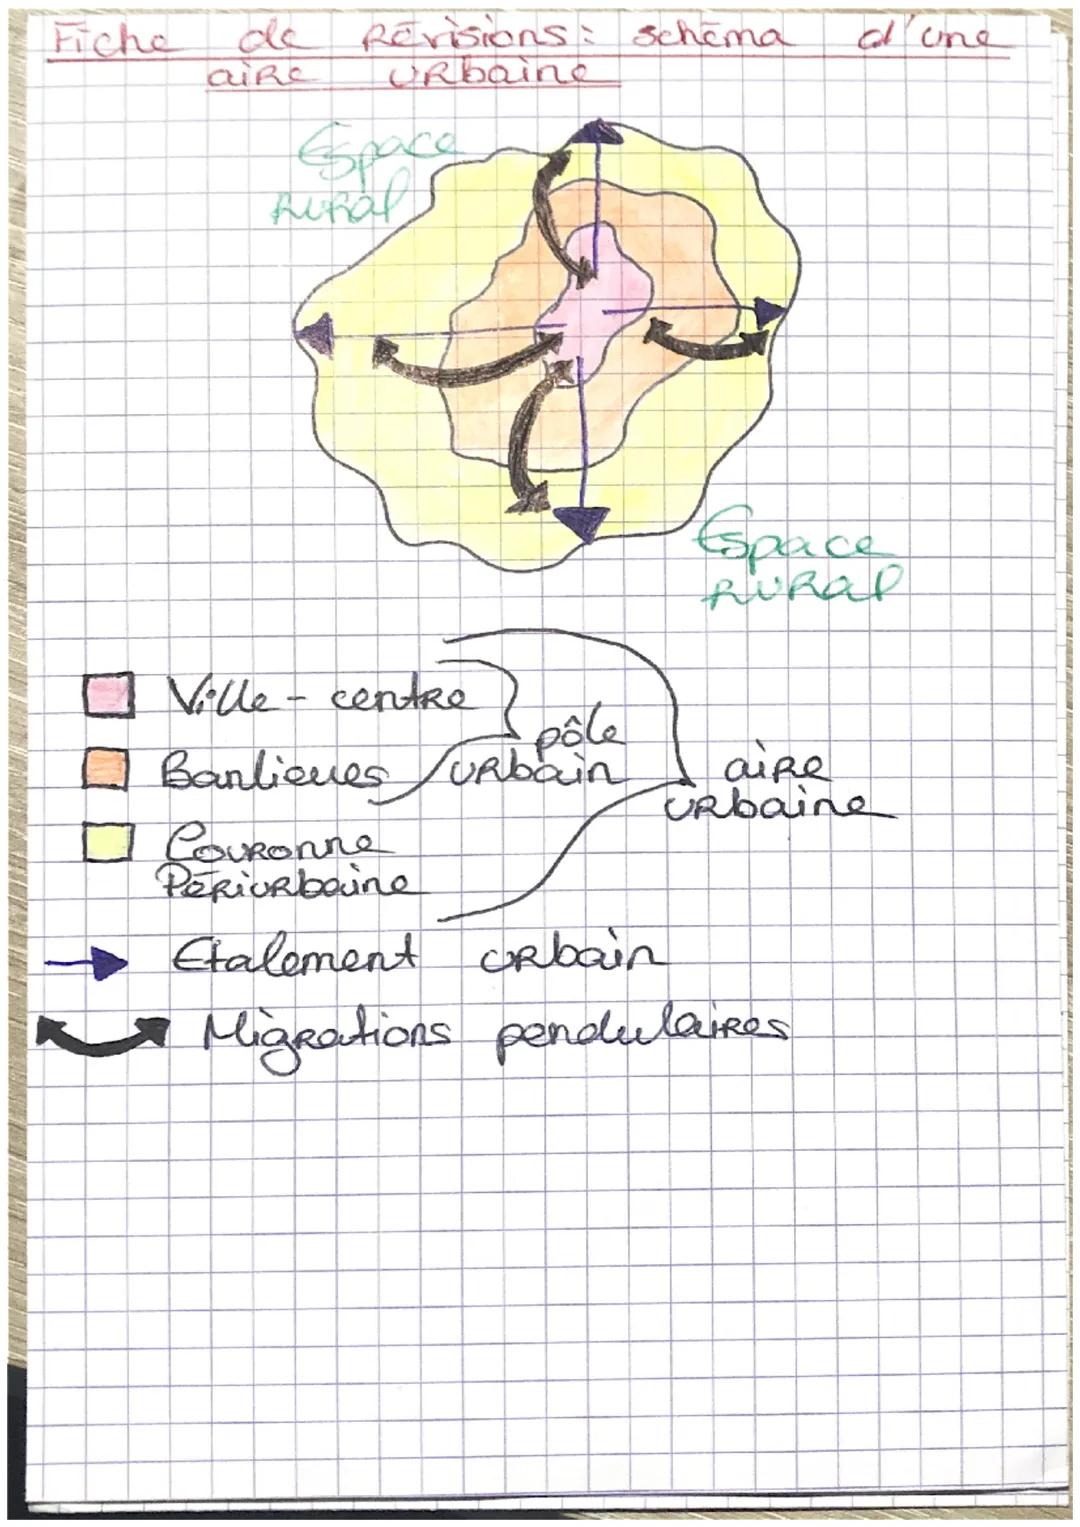 Fiche de Révisions : schéma d'une
aire urbaine
Espace
rural
Espace
rural
Ville-centre
Banlieues
pôle
urbain
Couronne
Périurbaine
aire
urbaine
Etalement urbain
Migrations pendulaires